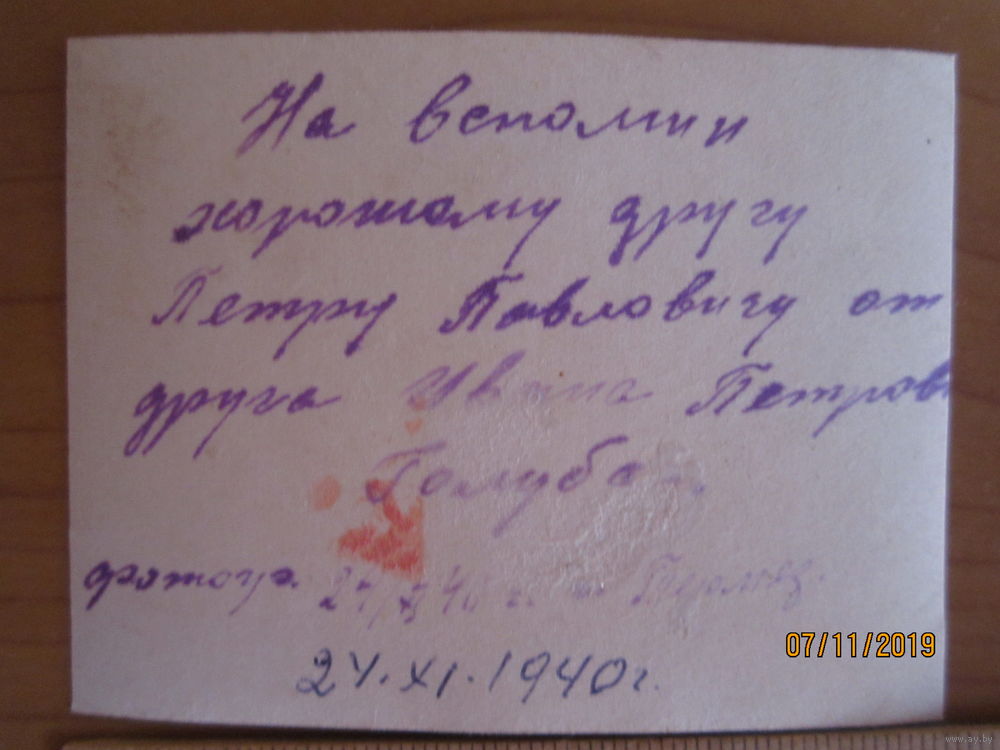 На вспомин
хорошому другу
Петру Павловичу от
друга Ивана Петров
Голуба
фотогр. 24/XI 40 г.
24.XI.1940г.
07/11/2019
www.ay.by